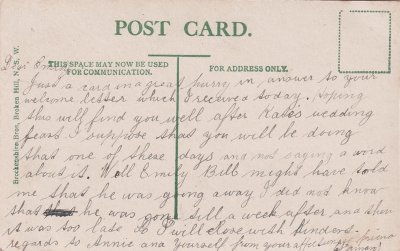 POST CARD.
THIS SPACE MAY NOW BE USED
FOR COMMUNICATION.
FOR ADDRESS ONLY.
Brockenshire Bros, Broken Hill, N. S. W.
Dear Emily
Just a card in a great hurry in answer to your
welcome letter which I received today. hoping
this will find you well after Kates wedding
feast. I suppose that you will be doing
that one of these days and not saying a word
about it. Well Emily Bill might have told
me that he was going away I did not know
that he was gone till a week after and then
it was too late so I will close with kindess
regards to Annie and Yourself from your affectionate friend